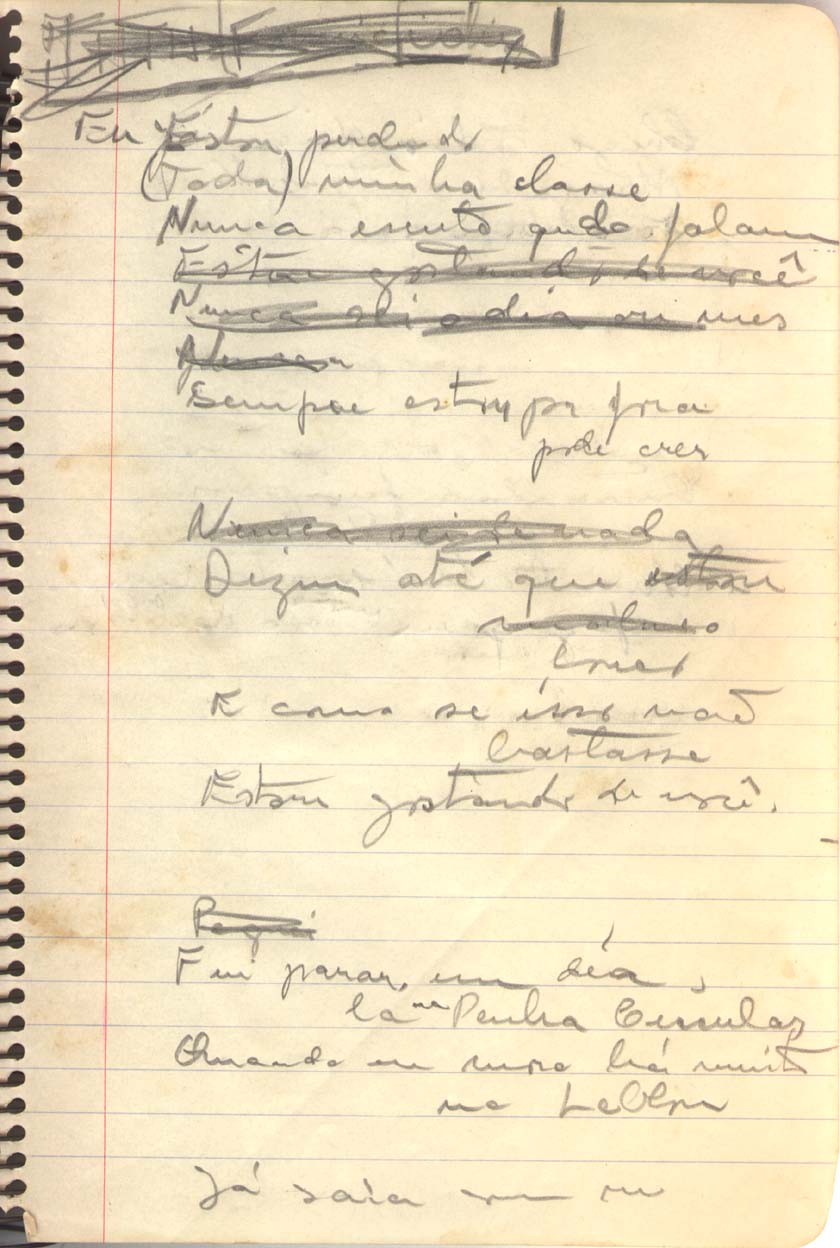 Eu Estou perdendo
(Toda) minha classe
Nunca escuto qudo. falam
Estou gostando de você
Nunca sei o dia ou mes
Nunca
Sempre estou por fora
pode crer
Nunca sei de nada
Dizem até que estou
maluco
louco
E como se isso não
bastasse
Estou gostando de você.
Pequi
Fui parar, um dia,
la na Penha Circular
Quando eu moro há muito
no Leblon
Já saia